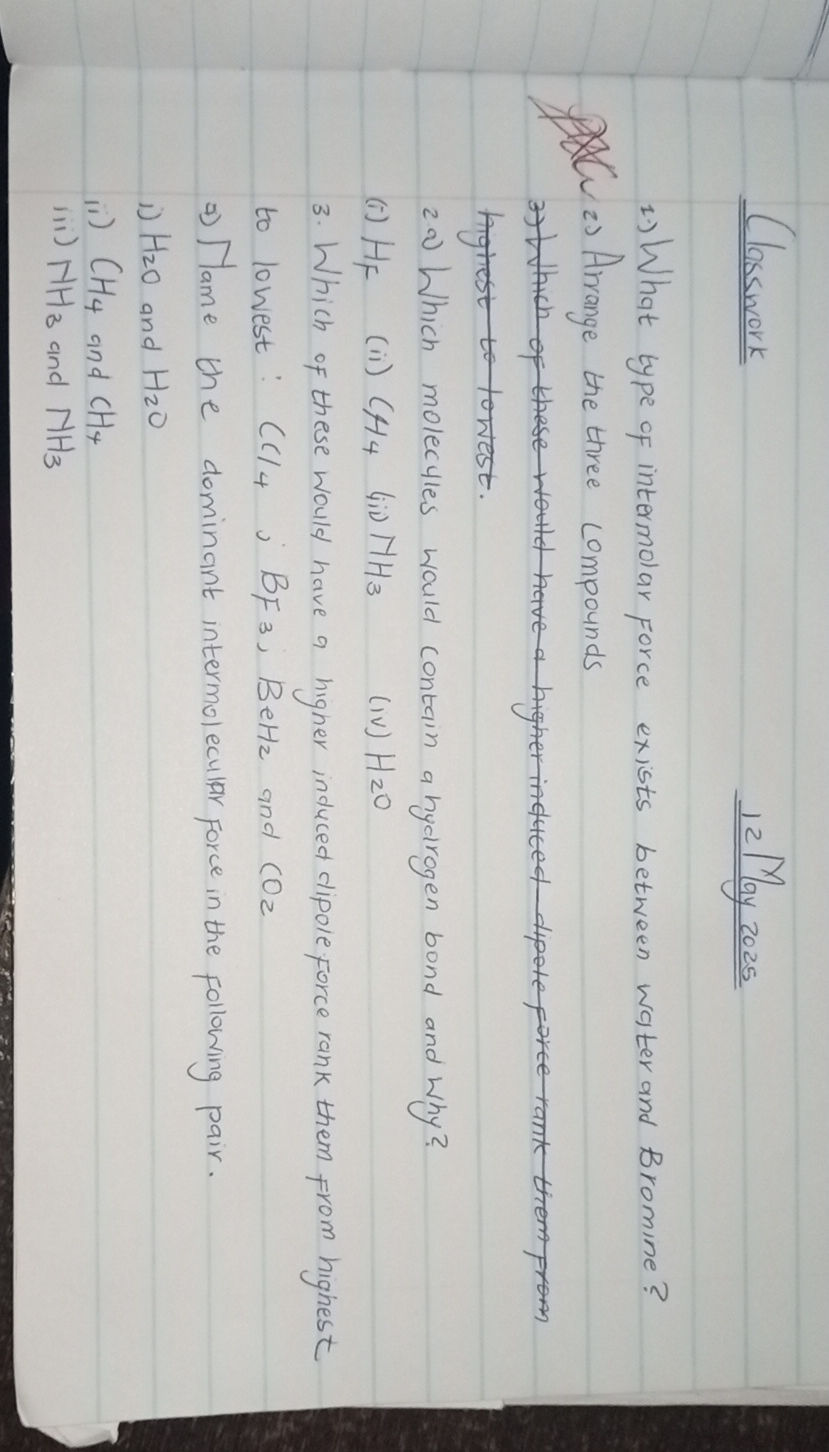 Classwork 12 May 2025
1.) What type of intermolar force exists between water and Bromine?
2) Arrange the three compounds
3) Which of these would have a higher induced dipole force rank them from
highest to lowest.
2a) Which molecules would contain a hydrogen bond and why?
(i) HF (ii) CH4 (iii) NH3 (iv) H2O
3. Which of these would have a higher induced dipole force rank them from highest
to lowest: CCl4 ; BF3, BeH2 and CO2
a) Name the dominant intermolecular force in the following pair.
i) H2O and H2O
ii) CH4 and CH4
iii) NH3 and NH3